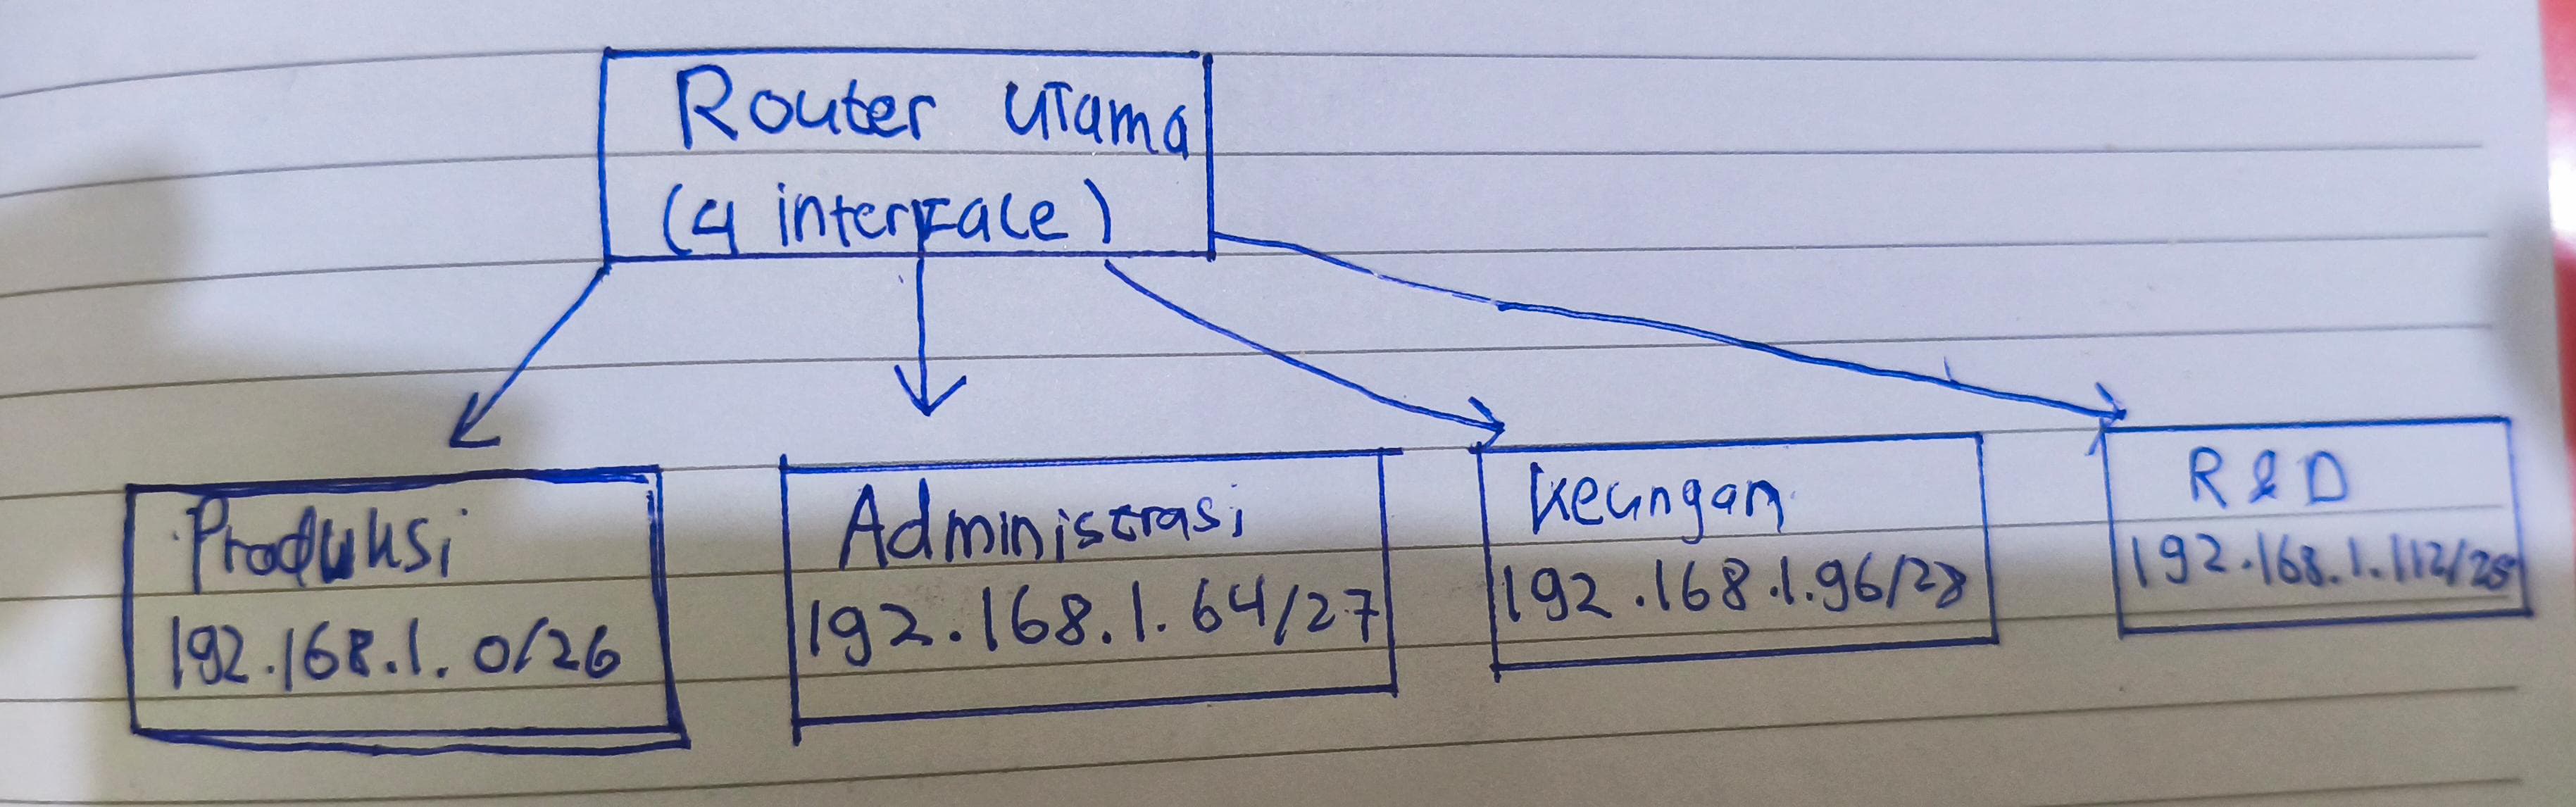 Router Utama
(4 interface)
Produksi
192.168.1.0/26
Administrasi
192.168.1.64/27
Keungan
192.168.1.96/28
R & D
192.168.1.112/28